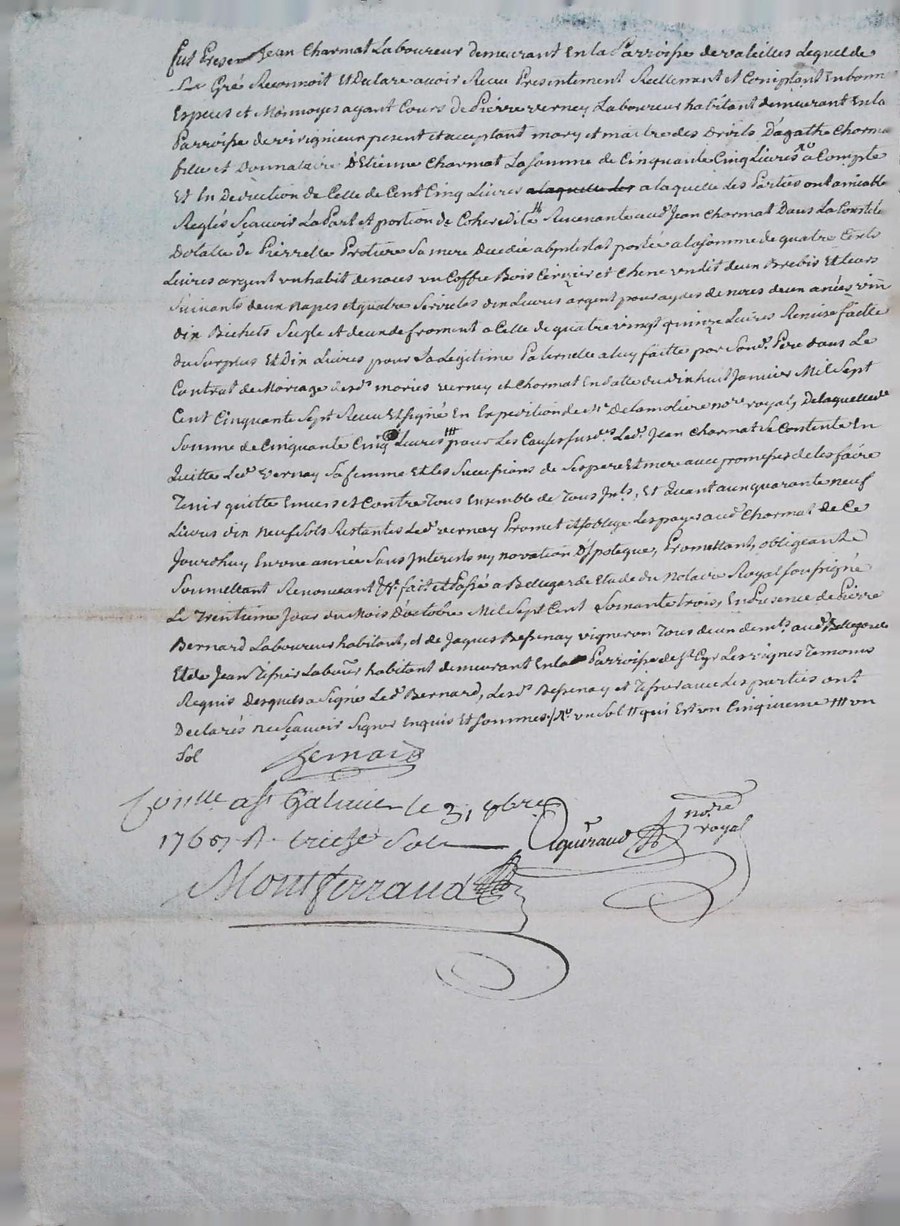 fut Present Jean Charmat Laboureur demeurant En la Parroisse de valeilles Lequel de
Son Gré Reconnoit Et Declare avoir Receu Presentement Reellement et Comptant En bonn
Especes et Monnoyes ayant Cours de Pierre verney Laboureur habitant demeurant En la
Parroisse de present et acceptant mary et maitre des Droits D'agathe Charma
fille et Donnataire D'Etienne Charmat La somme de Cinquante Cinq Livres a Compte
Et In Deduction de Celle de Cent Cinq Livres a laquelle des a laquelle des Parties ont amiable
Reglés Sçavoir La Part et portion de Coheredité Revenante aud. Jean Charmat Dans La Constitu
Dotalle de Pierrette Protiere Sa mere Decedée abintestat portée a la somme de quatre Cents
Livres argent un habit de noces un Coffre Bois Cerizier et Chene vendit deux Brebis Et Leurs
Suivants deux napes et quatre Serviettes dix Livres argent pour aydes de noces deux anées vin
dix Bichets Segle et deux de froment a Celle de quatre vingt quinze Livres Remise faitte
du Surplus Et Dix Livres pour Sa Legitime Paternelle a luy faitte par Sond. Pere dans Le
Contrat de Mariage desd. mariés verney et Charmat En datte du dix huit Janvier Mil Sept
Cent Cinquante Sept Receu Et Signé En Expedition de Me. Delamoliere nore. royal, De laquelle
Somme de Cinquante Cinq Livres pour Les Causes susd. Led. Jean Charmat Se Contente En
Quitte Led. Verney Sa femme Et les Successions de Ses pere Et mere avec promesses de les faire
Tenir quitte Envers et Contre Tous Ensemble de Tous Ints., Et Quant aux quarante neuf
Livres dix neuf Sols Restantes Led. verney Promet et S'oblige Les payer aud. Charmat de Ce
Jourdhuy En une année Sans Interests ny novation D'Ypoteque, Promettant, obligeant
Soumettant Renonceant fait et Passé a Bellegarde Etude du Notaire Royal Soussigné
Le Trentieme Jour du Mois D'octobre Mil Sept Cent Soixante trois, En Presence de Pierre
Bernard Laboureur habitant, et de Jaques Bessenay vigneron Tous deux demts. aud. Bellegarde
Et de Jean Tifrer Labour. habitant demeurant En la Parroisse de St. Cyr Les vignes Temoins
Requis Desquels a Signé Led. Bernard, Lesd. Bessenay et Tifrer avec Les parties ont
Declarés ne Sçavoir Signer Enquis Et Sommes, un Sol qui Est un Cinquieme un
Sol
Bernard
Conlle. a St. Galmier le 31 8bre
1763 R. treise Sols
Montferrand
Aguiraud nore. royal